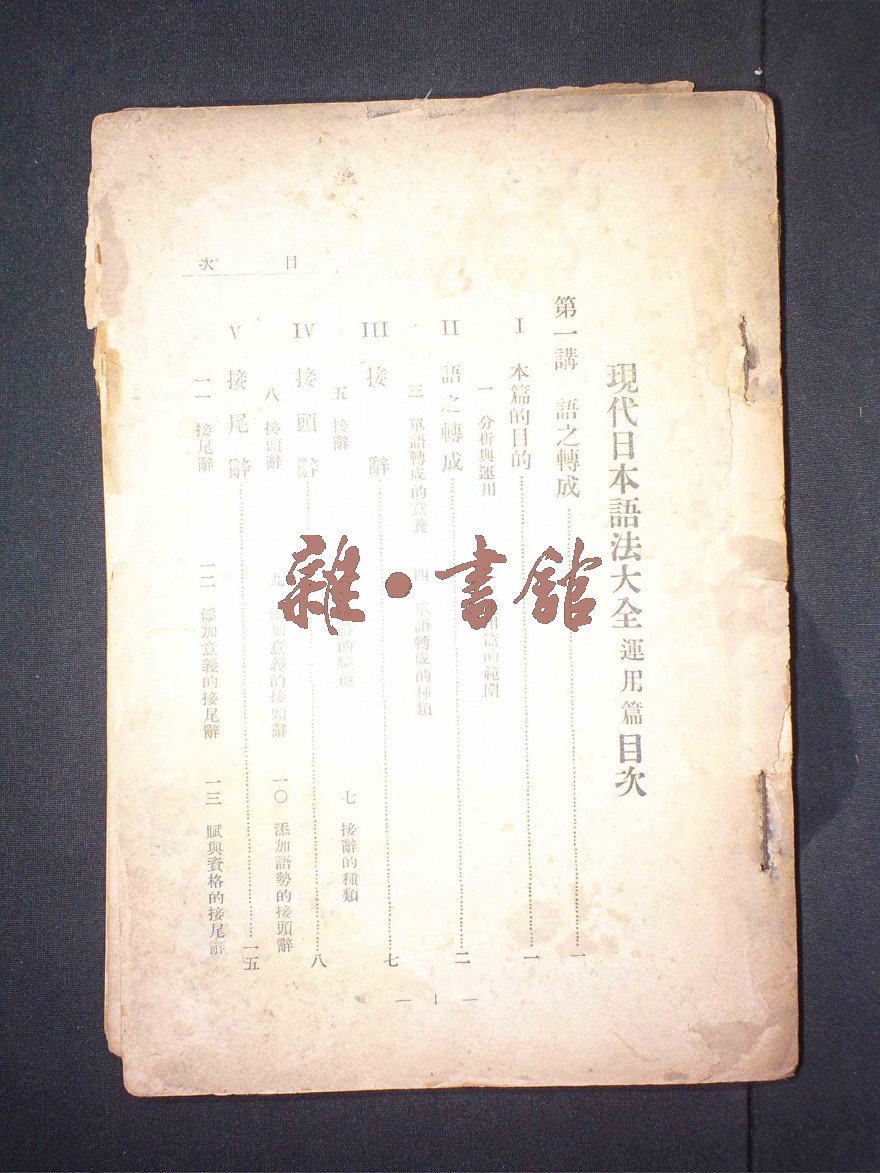 現代日本語法大全 運用篇 目次
第一講 語之轉成 一
I 本篇的目的 一
一 分析與運用 用篇的範圍
II 語之轉成 二
三 單語轉成的意義 四 單語轉成的種類
III 接辭 七
五 接辭 七 接辭的種類
IV 接頭辭 八
八 接頭辭 九 添加意義的接頭辭 一〇 添加語勢的接頭辭
V 接尾辭 一五
一一 接尾辭 一二 添加意義的接尾辭 一三 賦與資格的接尾辭
目次
— 1 —
雜·書館